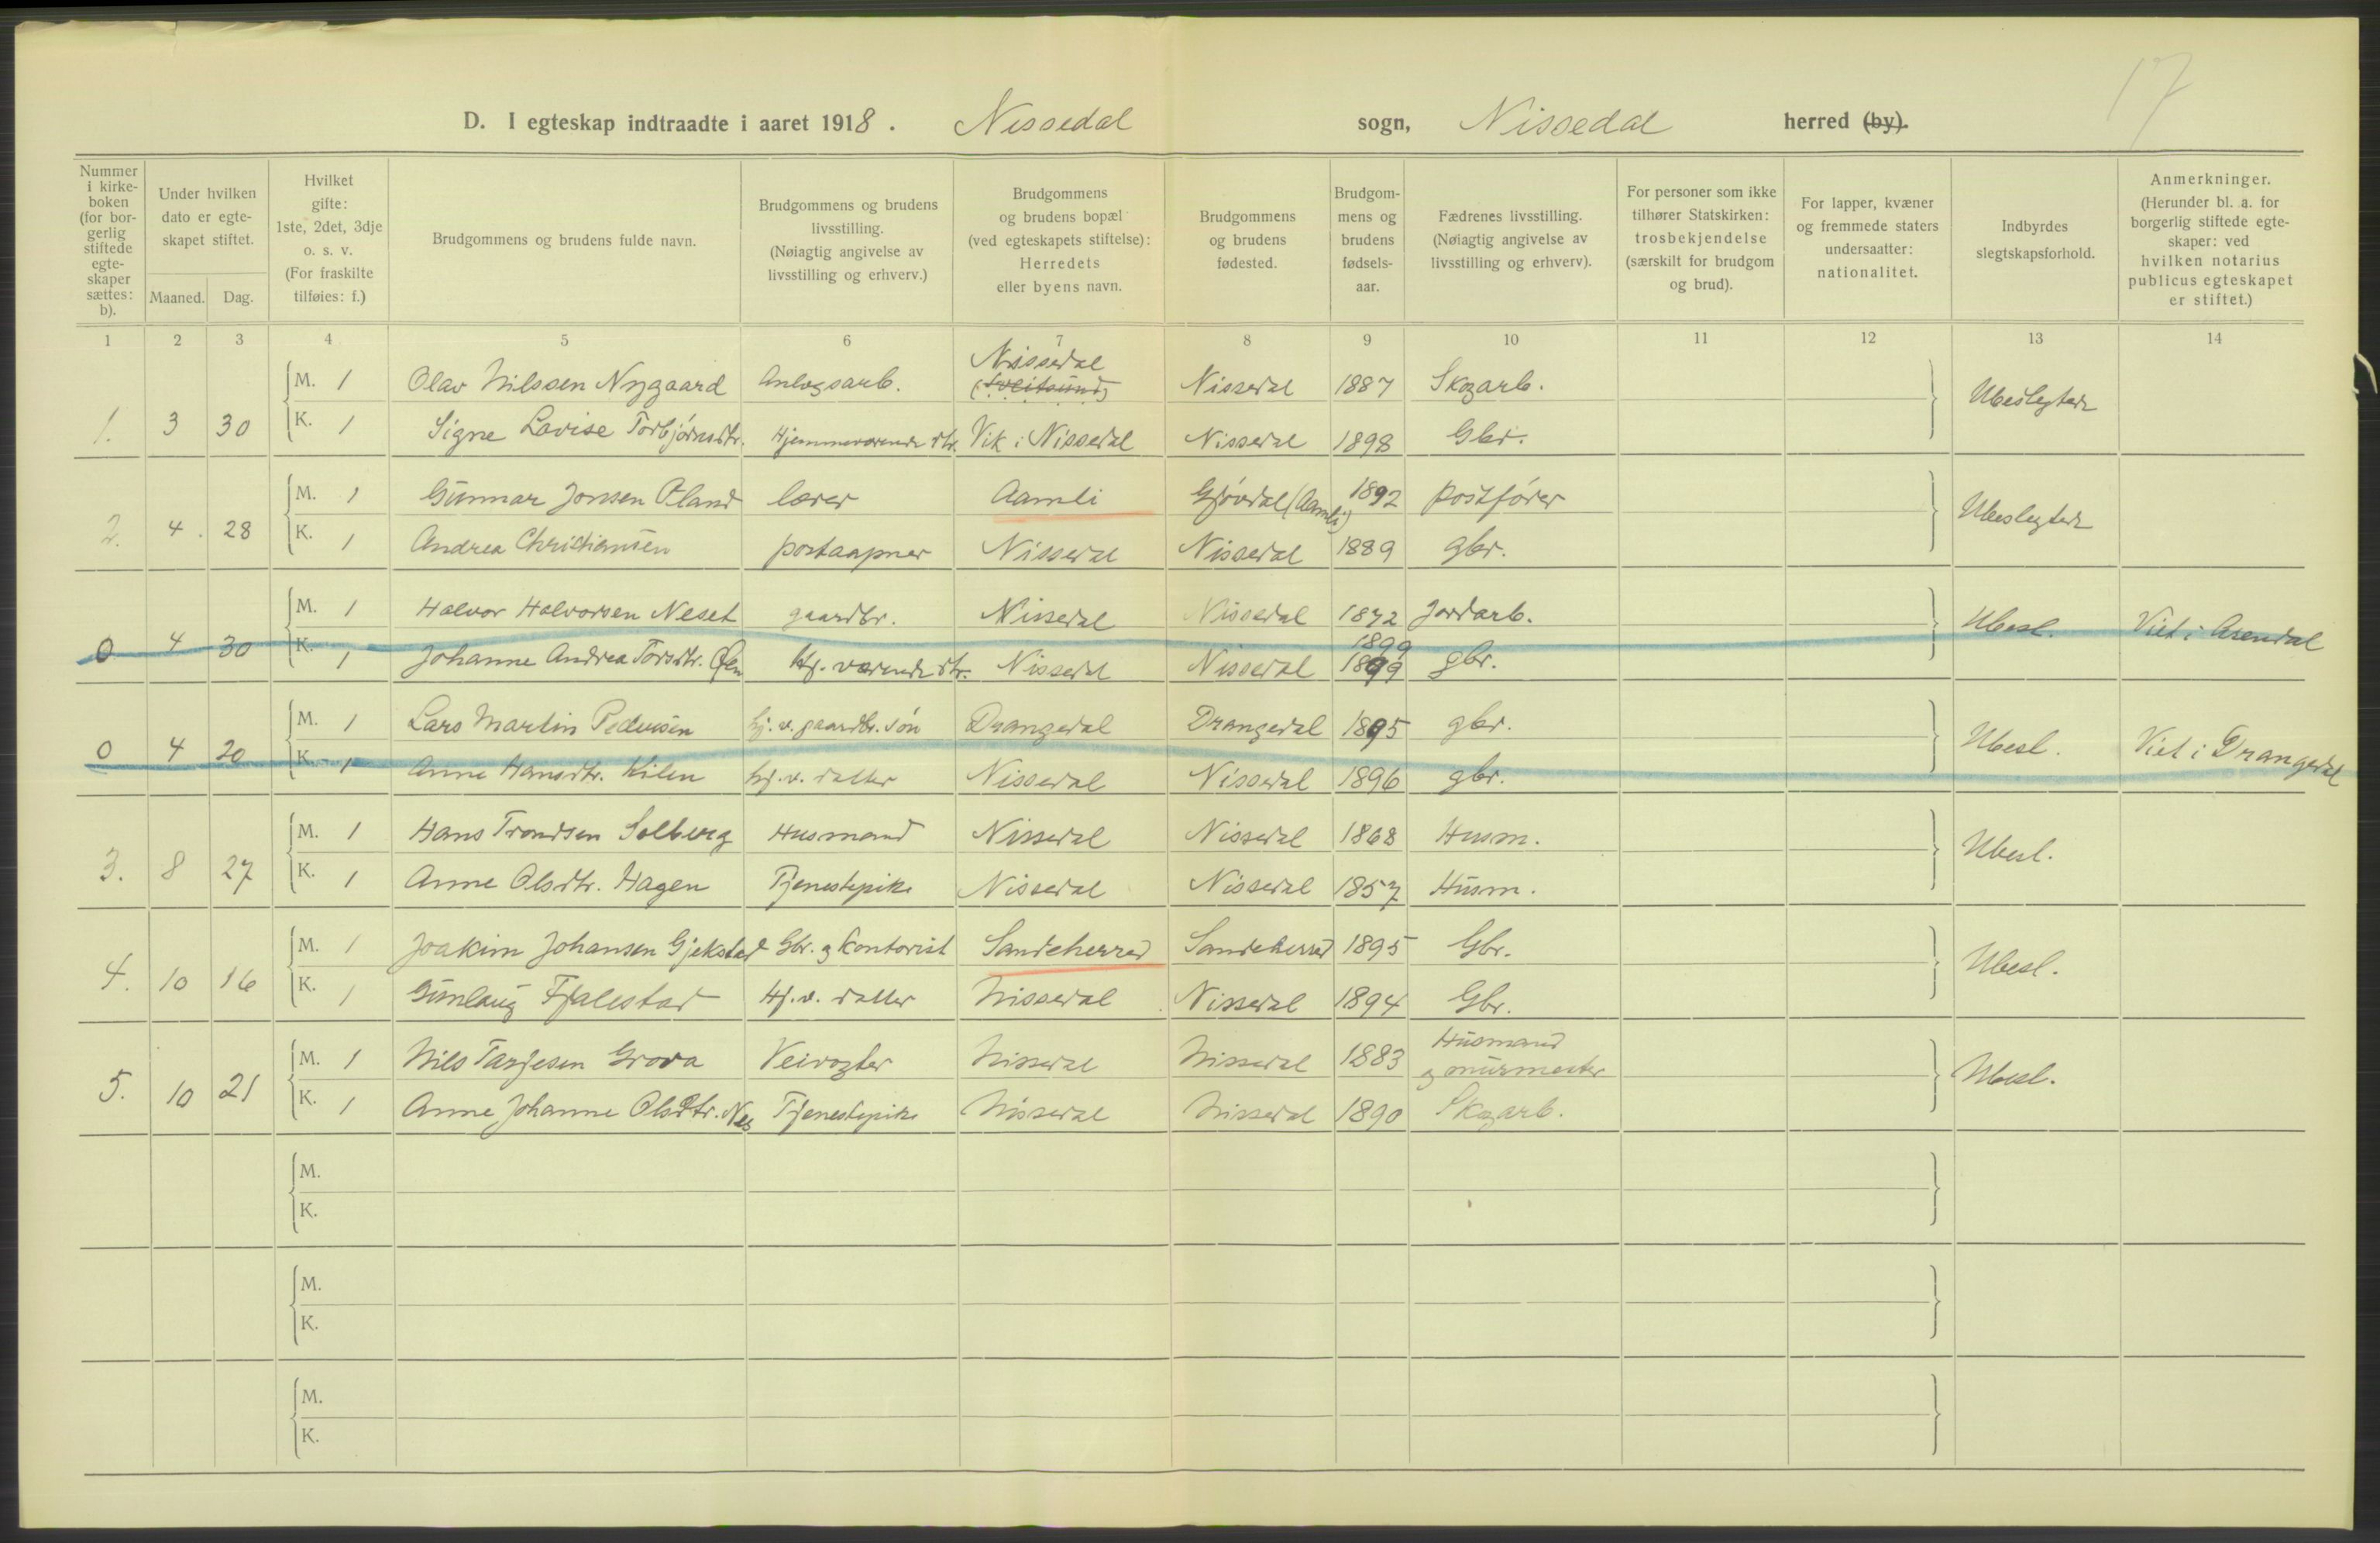 17
D. I egteskap indtraadte i aaret 1918. Nissedal sogn, Nissedal herred (by).
Nummer i kirke- boken (for bor- gerlig stiftede egte- skaper sættes: b).
Under hvilken dato er egte- skapet stiftet.
Maaned. Dag.
Hvilket gifte: 1ste, 2det, 3dje o. s. v. (For fraskilte tilføies: f.)
Brudgommens og brudens fulde navn.
Brudgommens og brudens livsstilling. (Nøiagtig angivelse av livsstilling og erhverv.)
Brudgommens og brudens bopæl (ved egteskapets stiftelse): Herredets eller byens navn.
Brudgommens og brudens fødested.
Brudgom- mens og brudens fødsels- aar.
Fædrenes livsstilling. (Nøiagtig angivelse av livsstilling og erhverv).
For personer som ikke tilhører Statskirken: trosbekjendelse (særskilt for brudgom og brud).
For lapper, kvæner og fremmede staters undersaatter: nationalitet.
Indbyrdes slegtskapsforhold.
Anmerkninger. (Herunder bl. a. for borgerlig stiftede egte- skaper: ved hvilken notarius publicus egteskapet er stiftet.)
1 2 3 4 5 6 7 8 9 10 11 12 13 14
M. 1 Olav Nilssen Nygaard Anlægsarb. Nissedal (Treitsund) Nissedal 1887 Skogarb.
1. 3 30 Ubeslegtede
K. 1 Signe Lovise Torbjørnsdtr. Hjemmeværende dtr. Vik i Nissedal Nissedal 1898 Gbr.
M. 1 Gunnar Jonsen Øland lærer Aamli Gjøvdal (Aamli) 1892 postfører
2. 4. 28 Ubeslegtede
K. 1 Andrea Christiansen postaapner Nissedal Nissedal 1889 gbr.
M. 1 Halvor Halvorsen Neset gaardbr. Nissedal Nissedal 1872 Jordarb.
0 4 30 Ubesl. Viet i Arendal
K. 1 Johanne Andrea Torsdtr. hj. værende dtr. Nissedal Nissedal 1899 1899 gbr.
M. 1 Lars Martin Pedersen hj. v. gaardbr. søn Drangedal Drangedal 1895 gbr.
0 4 20 Ubesl. Viet i Drangedal
K. 1 Anne Hansdtr. Kilen hj. v. datter Nissedal Nissedal 1896 gbr.
M. 1 Hans Trondsen Solberg Husmand Nissedal Nissedal 1868 Husm.
3. 8 27 Ubesl.
K. 1 Anne Olsdtr. Hagen Tjenestepike Nissedal Nissedal 1857 Husm.
M. 1 Joakim Johansen Gjekstad Gbr. og Kontorist Sandeherred Sandeherred 1895 Gbr.
4. 10 16 Ubesl.
K. 1 Gunlaug Fjalestad Hj. v. datter Nissedal Nissedal 1894 Gbr.
M. 1 Nils Tarjesen Grova Veivogter Nissedal Nissedal 1883 Husmand og murmester
5. 10 21 Ubesl.
K. 1 Anne Johanne Olsdtr. Nes Tjenestepike Nissedal Nissedal 1890 Skogarb.
M.
K.
M.
K.
M.
K.